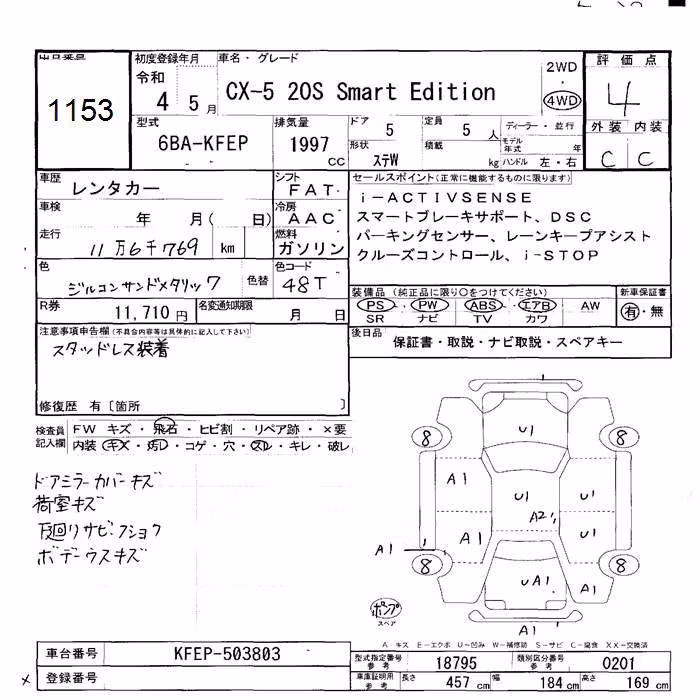 出品番号
1153
初度登録年月
令和
4 5月
車名・グレード
CX-5 20S Smart Edition
2WD
・
4WD
評価点
4
外装 内装
C C
型式
6BA-KFEP
排気量
1997
CC
ドア
5
定員
5人
形状
ステW
積載
kg
ディーラー・並行
モデル年式 年
ハンドル 左・右
車歴
レンタカー
シフト
FAT
車検
年 月( 日)
冷房
AAC
走行
11万6千769 km
燃料
ガソリン
色
ジルコンサンドメタリック
色替
色コード
48T
R券
11,710円
名変通知期限
月 日
セールスポイント(正常に機能するものに限ります)
i-ACTIVSENSE
スマートブレーキサポート、DSC
パーキングセンサー、レーンキープアシスト
クルーズコントロール、i-STOP
装備品(純正品に限り○をつけてください)
PS・PW・ABS・エアB AW
SR ナビ TV カワ
新車保証書
有・無
後日品
保証書・取説・ナビ取説・スペアキー
注意事項申告欄(不具合内容等は具体的に記入して下さい)
スタッドレス装着
修復歴 有〔箇所 〕
検査員記入欄
FW キズ・飛石・ヒビ割・リペア跡・×要
内装・キズ・汚れ・コゲ・穴・スレ・キレ・破レ
ドアミラーカバーキズ
荷室キズ
下廻りサビ・フショク
ボデーウスキズ
1
U1
8
8
A1
U1
U1
A2
1
A1
U1
A1
1
8
8
UA1
A1
A1
ポンプ
スペア
A-キズ E-エクボ U-凹み W-補修跡 S-サビ C-腐食 XX-交換済
車台番号
KFEP-503803
登録番号
型式指定番号
参考
18795
類別区分番号
参考
0201
車庫証明用
参考
長さ
457cm
幅
184cm
高さ
169cm